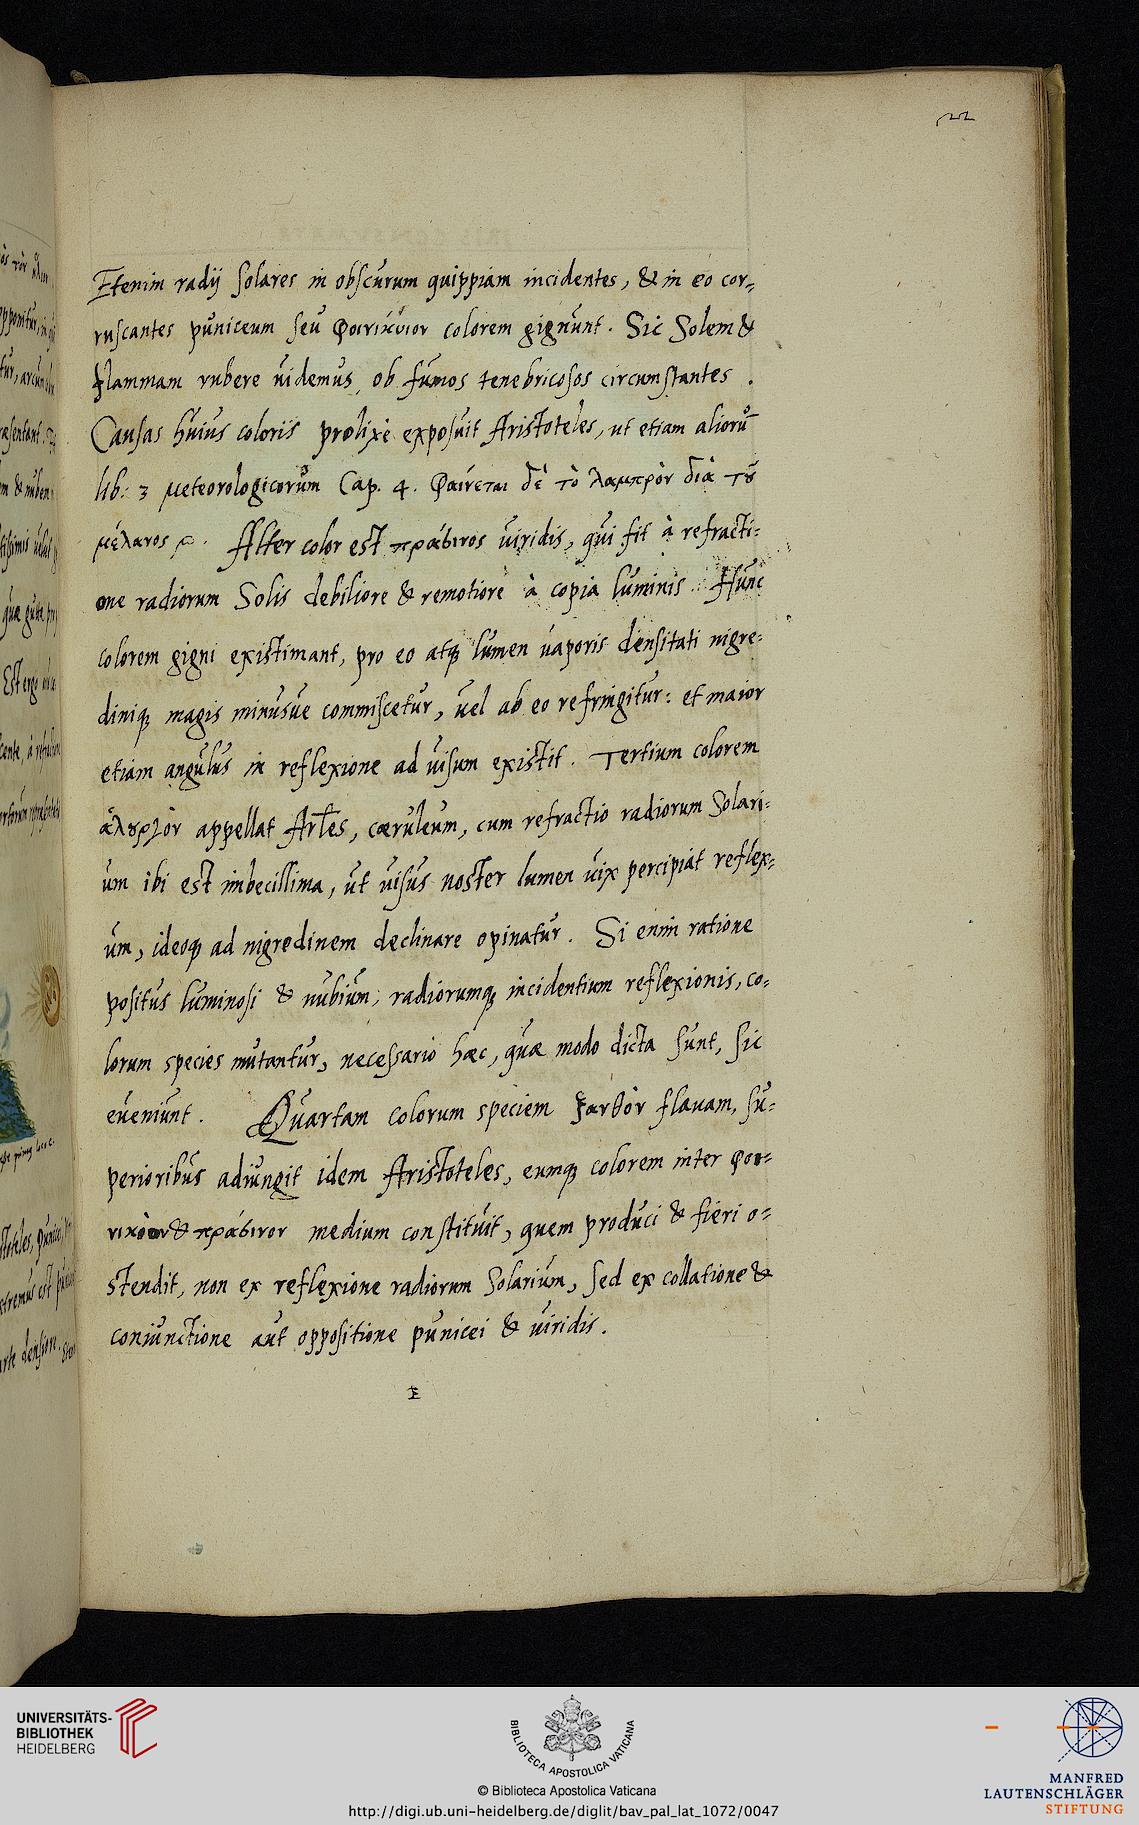 22
Etenim radij solares in obscurum quippiam incidentes, & in eo cor-
ruscantes puniceum seu φοινίκιον colorem gignunt. Sic Solem &
flammam rubere uidemus, ob fumos tenebricosos circumstantes.
Causas huius coloris prolixè exposuit Aristoteles, ut etiam aliorū
lib: 3 meteorologicorūm Cap. 4. Φαίνεται δὲ τὸ λαμπρὸν διὰ τȣ͂
μέλανος. Alter color est πράσινος uiridis, qui fit à refracti-
one radiorum Solis debiliore & remotiore à copia luminis. Hunc
colorem gigni existimant, pro eo atq; lumen uaporis densitati nigre-
diniq; magis minusue commiscetur, uel ab eo refringitur: et maior
etiam angulus in reflexione ad uisum existit. Tertium colorem
ἁλȣργὸν appellat Ar̄tles, cæruleum, cum refractio radiorum Solari-
um ibi est imbecillima, ut uisus noster lumen uix percipiat reflex-
um, ideoq; ad nigredinem declinare opinatur. Si enim ratione
positus luminosi & nubium, radiorumq; incidentium reflexionis, co-
lorum species mutantur, necessario hæc, quæ modo dicta sunt, sic
eueniunt. Quartam colorum speciem ξανθὸν flauam, su-
perioribus adiungit idem Aristoteles, eumq; colorem inter φοι-
νικὸον & πράσινον medium constituit, quem produci & fieri o-
stendit, non ex reflexione radiorum Solarium, sed ex collatione &
coniunctione aut oppositione punicei & uiridis.
UNIVERSITÄTS-
BIBLIOTHEK
HEIDELBERG
BIBLIOTECA APOSTOLICA VATICANA
© Biblioteca Apostolica Vaticana
http://digi.ub.uni-heidelberg.de/diglit/bav_pal_lat_1072/0047
MANFRED
LAUTENSCHLÄGER
STIFTUNG